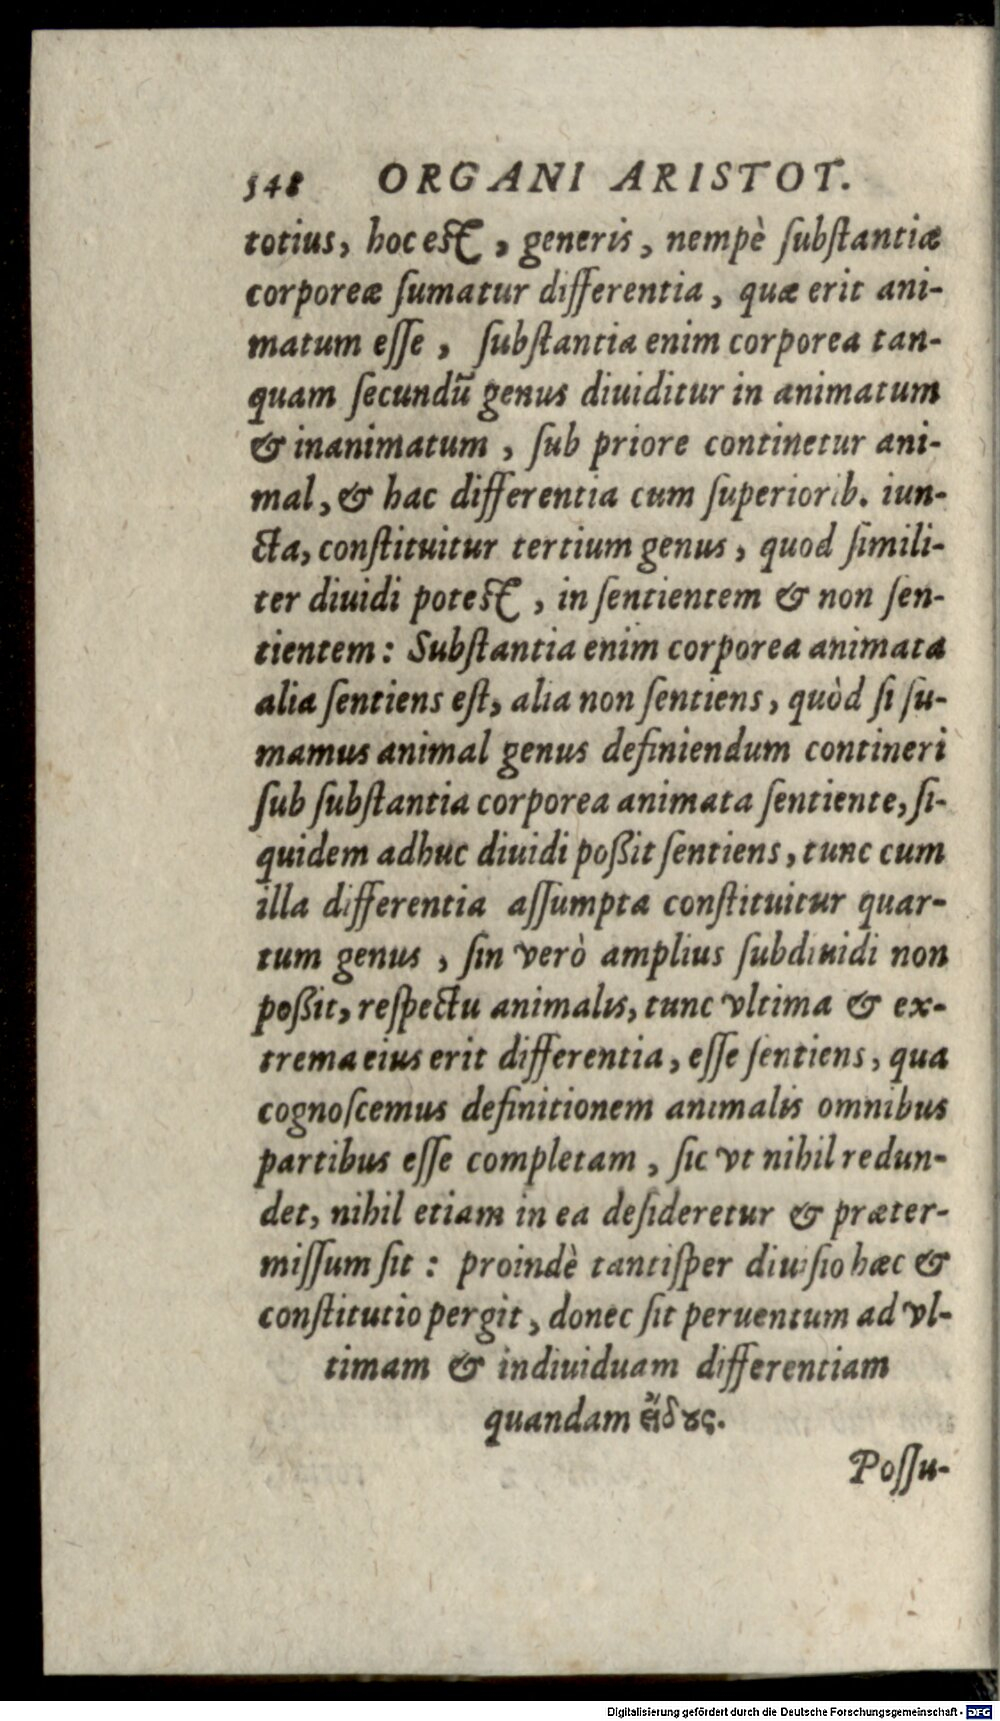 348 ORGANI ARISTOT.
totius, hoc est, generis, nempè ſubſtantiæ
corporeæ ſumatur differentia, quæ erit ani-
matum eſſe, ſubſtantia enim corporea tan-
quam ſecundũ genus diuiditur in animatum
& inanimatum, ſub priore continetur ani-
mal, & hac differentia cum ſuperiorib. iun-
cta, conſtituitur tertium genus, quod ſimili-
ter diuidi potest, in ſentientem & non ſen-
tientem: Subſtantia enim corporea animata
alia ſentiens eſt, alia non ſentiens, quòd ſi ſu-
mamus animal genus definiendum contineri
ſub ſubſtantia corporea animata ſentiente, ſi-
quidem adhuc diuidi poßit ſentiens, tunc cum
illa differentia aſſumpta conſtituitur quar-
tum genus, ſin verò amplius ſubdiuidi non
poßit, reſpectu animalis, tunc vltima & ex-
trema eius erit differentia, eſſe ſentiens, qua
cognoſcemus definitionem animalis omnibus
partibus eſſe completam, ſic vt nihil redun-
det, nihil etiam in ea deſideretur & præter-
miſſum ſit: proindè tantiſper diuiſio hæc &
conſtitutio pergit, donec ſit peruentum ad vl-
timam & indiuiduam differentiam
quandam εἴδȣς.
Poſſu-
Digitalisierung gefördert durch die Deutsche Forschungsgemeinschaft - DFG